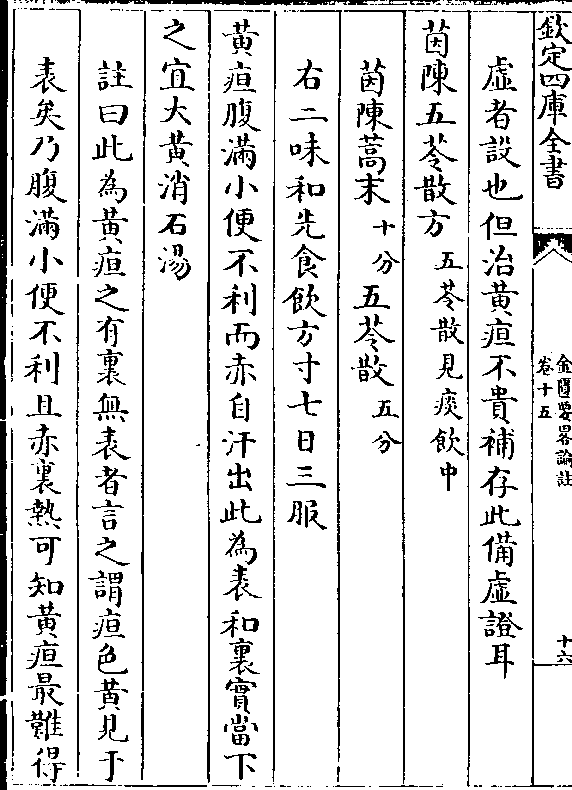 欽定四庫全書
金匱要畧論註
卷十五
十六
虛者設也但治黃疸不貴補存此備虛證耳
茵陳五苓散方 五苓散見痰飲中
茵陳蒿末 十分 五苓散 五分
右二味和先食飲方寸七日三服
黃疸腹滿小便不利而赤自汗出此為表和裏實當下
之宜大黃消石湯
註曰此為黃疸之有裏無表者言之謂疸色黃見于
表矣乃腹滿小便不利且赤裏熱可知黃疸最難得